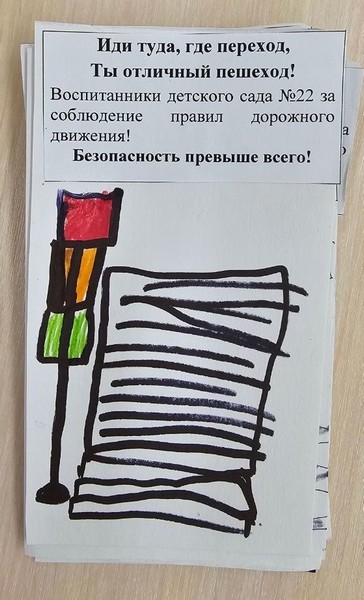 Иди туда, где переход,
Ты отличный пешеход!
Воспитанники детского сада №22 за
соблюдение правил дорожного
движения!
Безопасность превыше всего!